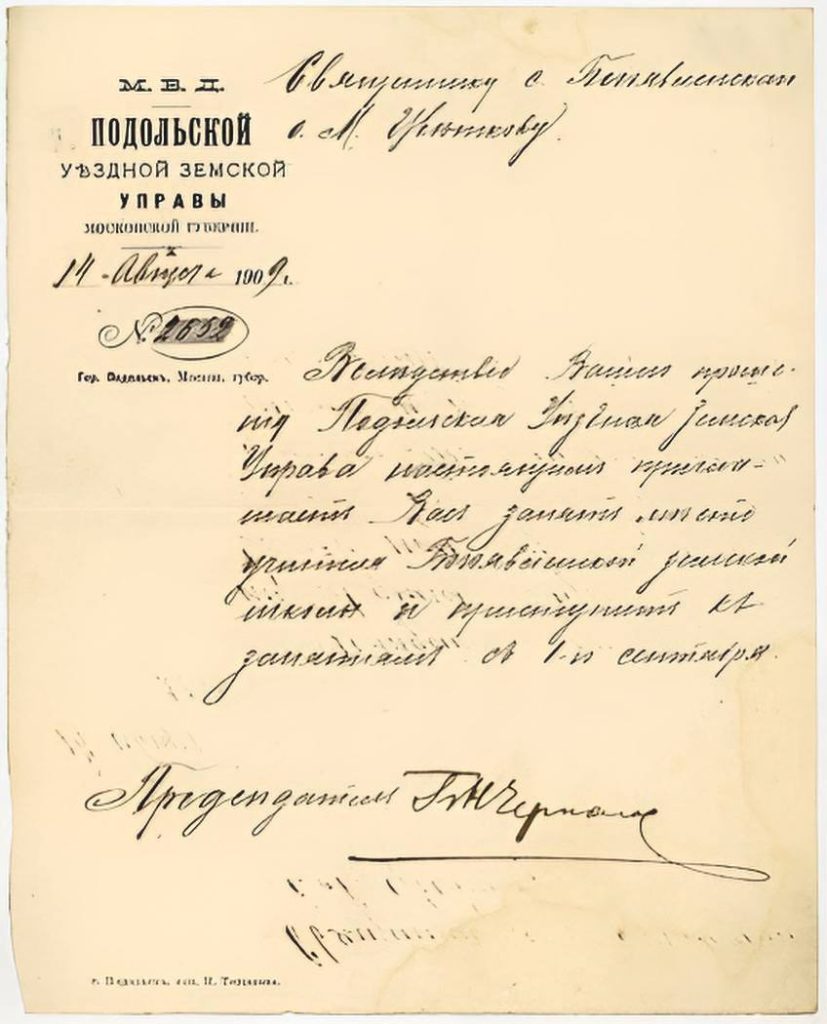 М. В. Д.
ПОДОЛЬСКОЙ
УѢЗДНОЙ ЗЕМСКОЙ
УПРАВЫ
МОСКОВСКОЙ ГУБЕРНІИ.
14 Августа 1909 г.
№ 2652
Гор. Подольскъ, Москов. губер.
Священнику с.
о. М. Цвѣткову.
Вслѣдствіе Вашего проше-
нія Подольская Уѣздная Земская
Управа настоящимъ пригла-
шаетъ Васъ занять мѣсто
учителя земской
школы и приступить къ
занятіямъ съ 1-го сентября.
Предсѣдатель
г. Подольскъ, тип.